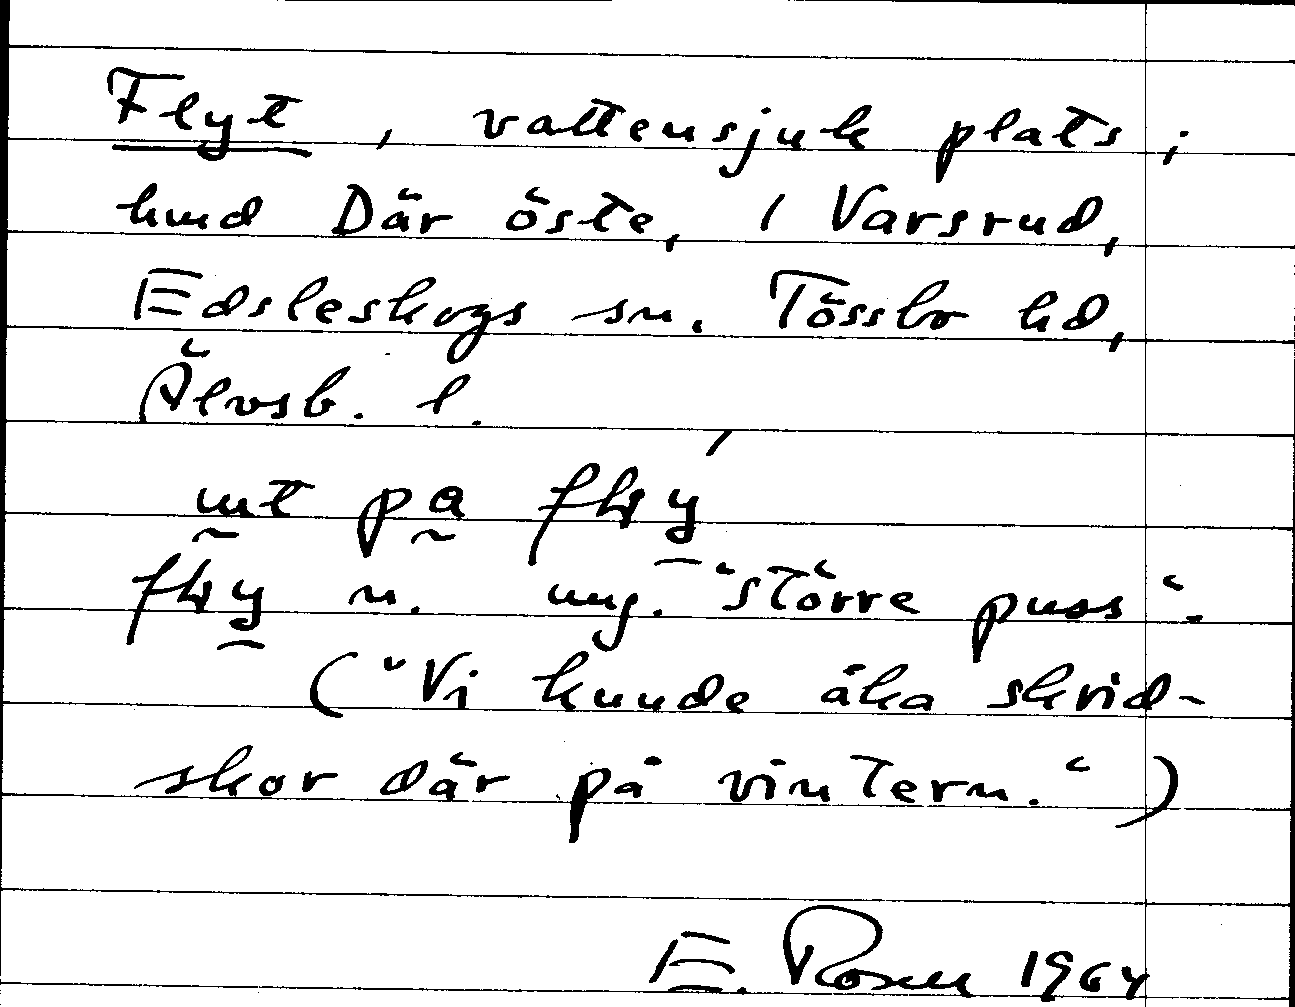 Flyt, vattensjuk plats;
hmd Där öste, i Varsrud,
Edsleskogs sn. Tössbo hd,
Älvsb. l.
ut pa fly
fly n. ung. "större puss".
("Vi kunde åka skrid-
skor där på vintern.")
E. Rosell 1964